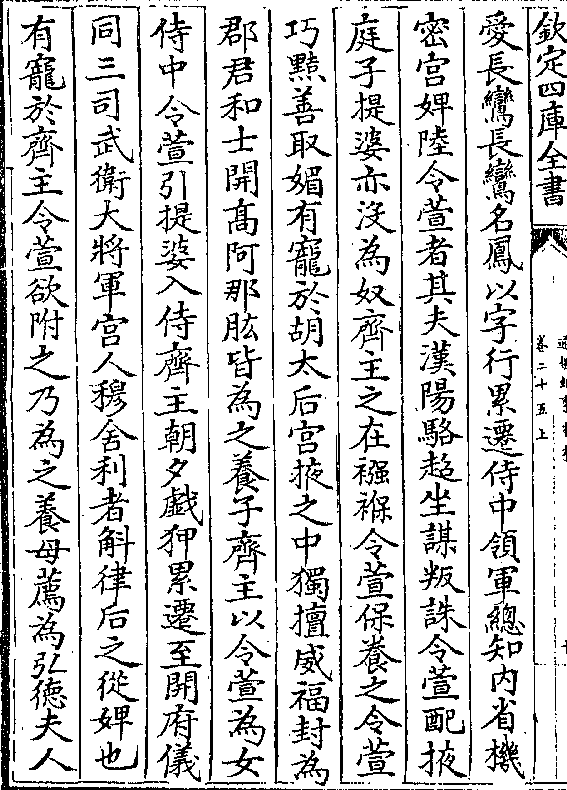 欽定四庫全書
卷二十五上
愛長鸞長鸞名鳳以字行累遷侍中領軍總知内省機
密宫婢陸令萱者其夫漢陽駱超坐謀叛誅令萱配掖
庭子提婆亦没為奴齊主之在襁褓令萱保養之令萱
巧黠善取媚有寵於胡太后宫掖之中獨擅威福封為
郡君和士開髙阿那肱皆為之養子齊主以令萱為女
侍中令萱引提婆入侍齊主朝夕戯狎累遷至開府儀
同三司武衛大將軍宫人穆舎利者斛律后之從婢也
有寵於齊主令萱欲附之乃為之養母薦為弘德夫人